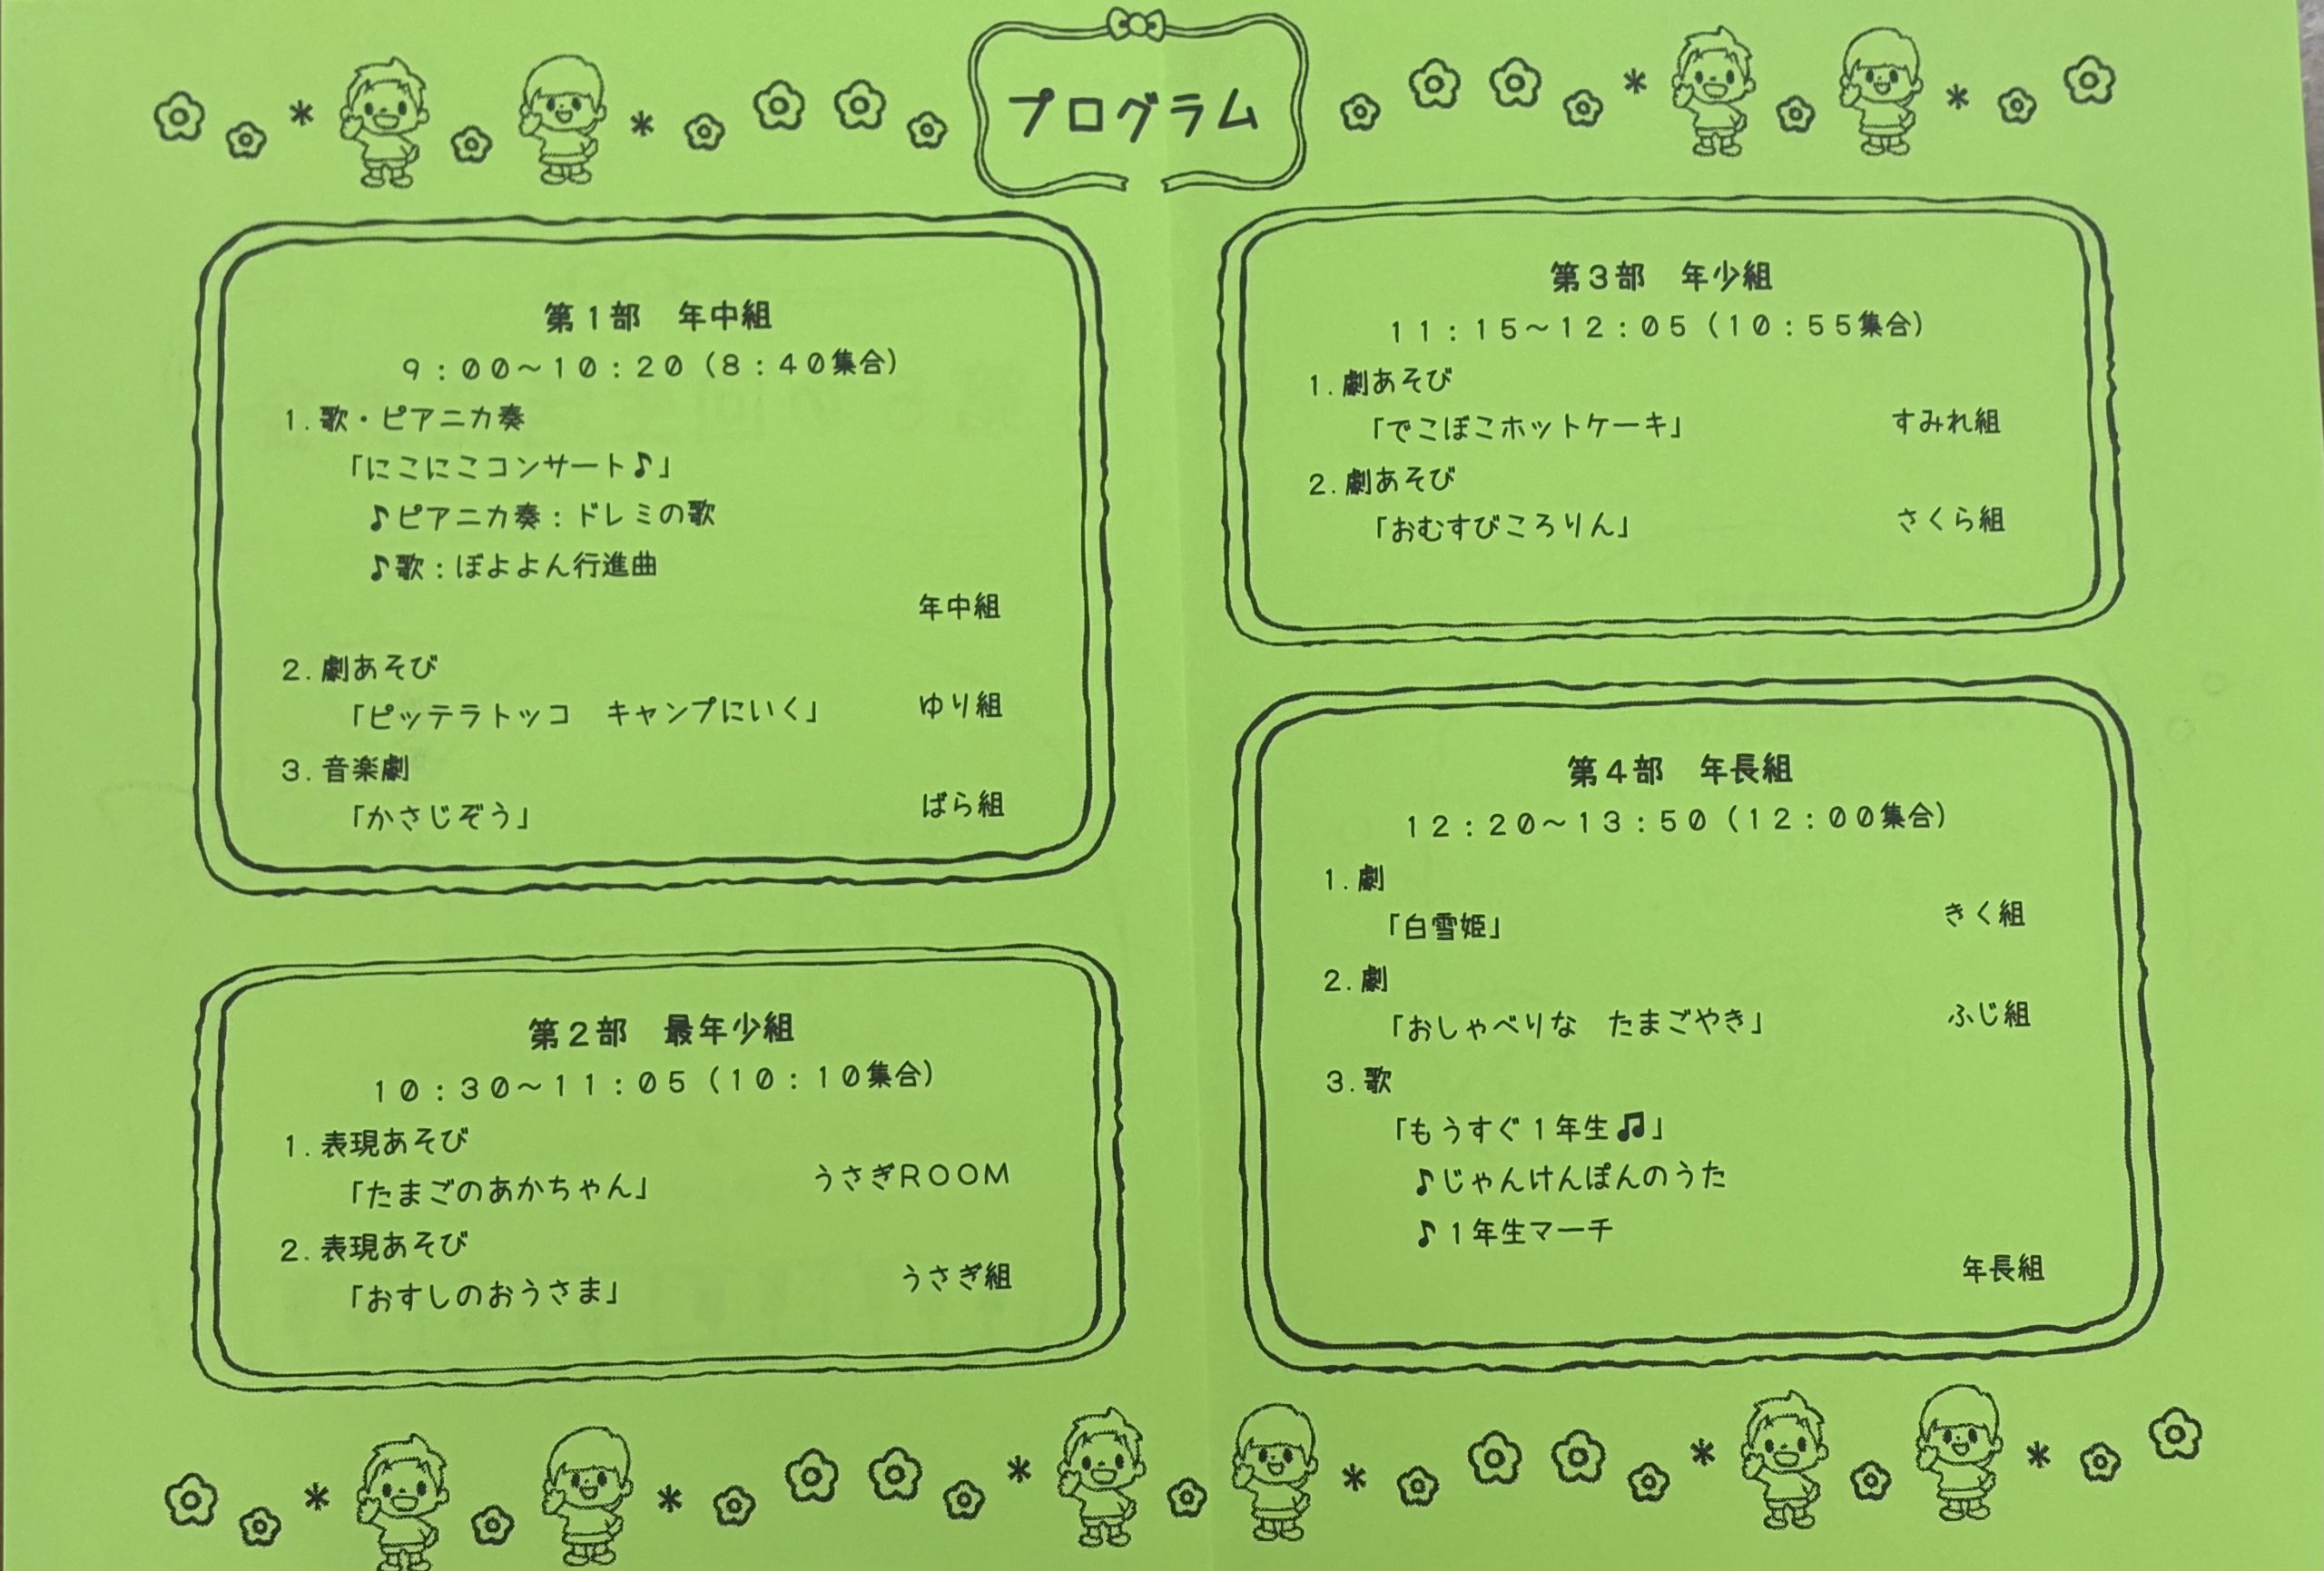 プログラム
第１部　年中組
９：００～１０：２０（８：４０集合）
１．歌・ピアニカ奏
「にこにこコンサート♪」
♪ピアニカ奏：ドレミの歌
♪歌：ぼよよん行進曲
年中組
２．劇あそび
「ピッテラトッコ　キャンプにいく」　ゆり組
３．音楽劇
「かさじぞう」　ばら組
第２部　最年少組
１０：３０～１１：０５（１０：１０集合）
１．表現あそび
「たまごのあかちゃん」　うさぎＲＯＯＭ
２．表現あそび
「おすしのおうさま」　うさぎ組
第３部　年少組
１１：１５～１２：０５（１０：５５集合）
１．劇あそび
「でこぼこホットケーキ」　すみれ組
２．劇あそび
「おむすびころりん」　さくら組
第４部　年長組
１２：２０～１３：５０（１２：００集合）
１．劇
「白雪姫」　きく組
２．劇
「おしゃべりな　たまごやき」　ふじ組
３．歌
「もうすぐ１年生♫」
♪じゃんけんぽんのうた
♪１年生マーチ
年長組